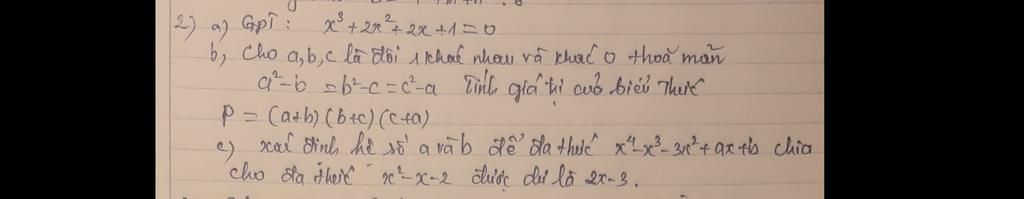 2) a) GPT : x³ + 2x² + 2x + 1 = 0
b, cho a,b,c là đôi 1 khác nhau và khác 0 thoả mãn
a² - b = b² - c = c² - a Tính giá trị của biểu thức
P = (a+b) (b+c) (c+a)
c) xác định hệ số a và b để đa thức x⁴ - x³ - 3x² + ax + b chia
cho đa thức x² - x - 2 được dư là 2x - 3 .